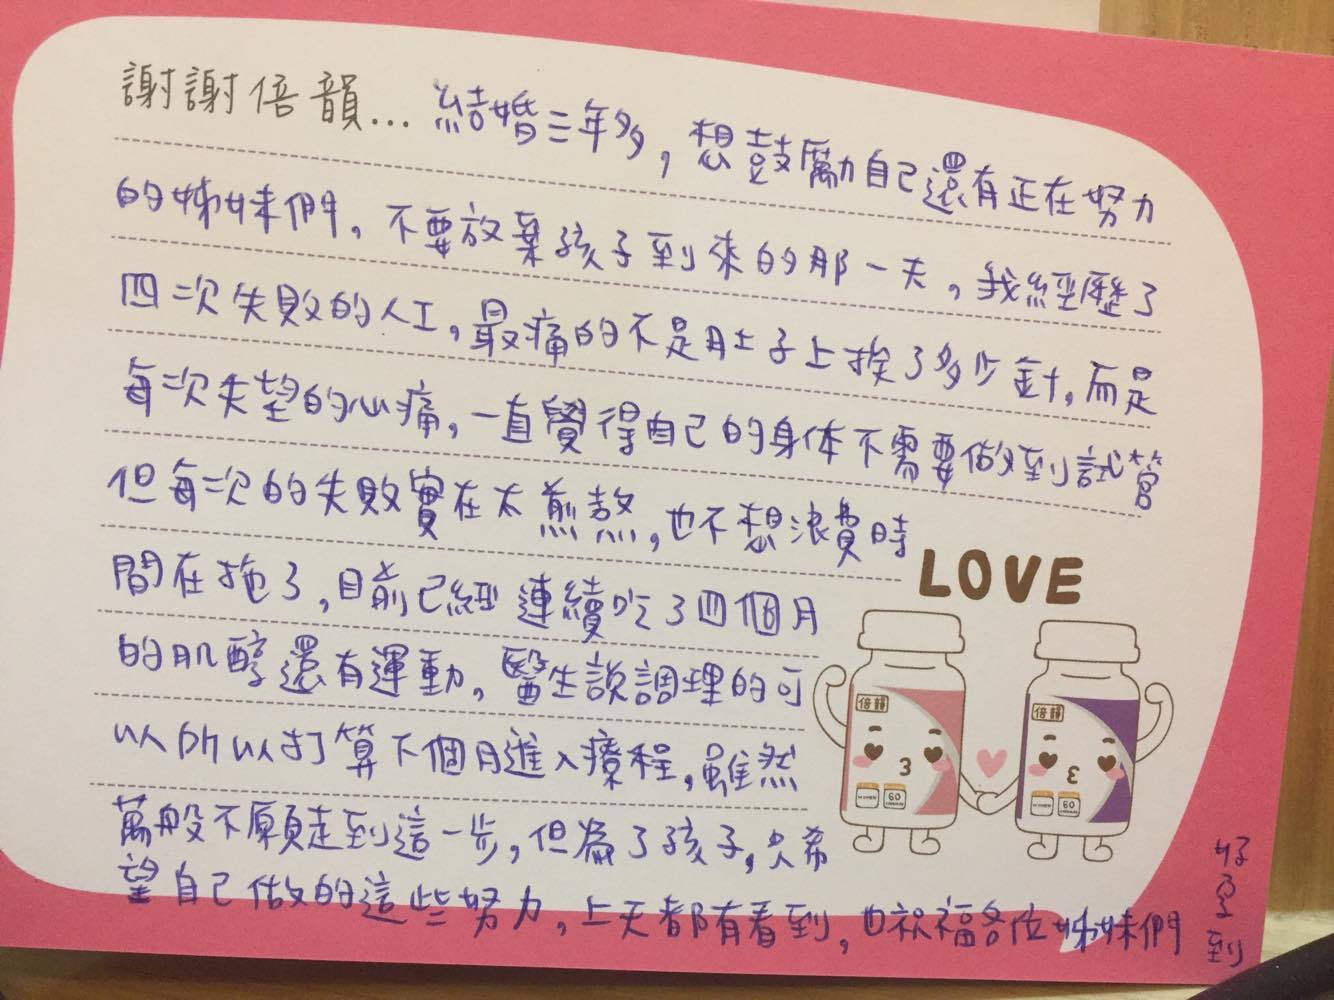 謝謝倍韻... 結婚三年多，想鼓勵自己還有正在努力
的姊妹們，不要放棄孩子到來的那一天，我經歷了
四次失敗的人工，最痛的不是肚子上挨了多少針，而是
每次失望的心痛，一直覺得自己的身体不需要做到試管
但每次的失敗實在太煎熬，也不想浪費時
間在拖了，目前已經連續吃了四個月
的肌醇還有運動，醫生說調理的可
以所以打算下個月進入療程，雖然
萬般不願走到這一步，但為了孩子，只希
望自己做的這些努力，上天都有看到，也祝福各位姊妹們
好孕到
LOVE
倍韻
倍韻
60
60